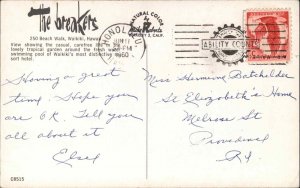 The Breakers
250 Beach Walk, Waikiki, Hawaii
View showing the casual, carefree life in the
lovely tropical garden around the fresh water
swimming pool of Waikiki's most distinctive
soft hotel.
NATURAL COLOR
by
HONOLULU
JUN 17
PM
1960
ABILITY COUNTS
Having a great
time. Hope you
are O.K. Tell your
all about it.
Elsey
Miss Hermine Batchelder
St Elizabeth's Home
Melrose St
Providence
R.I.
C8515